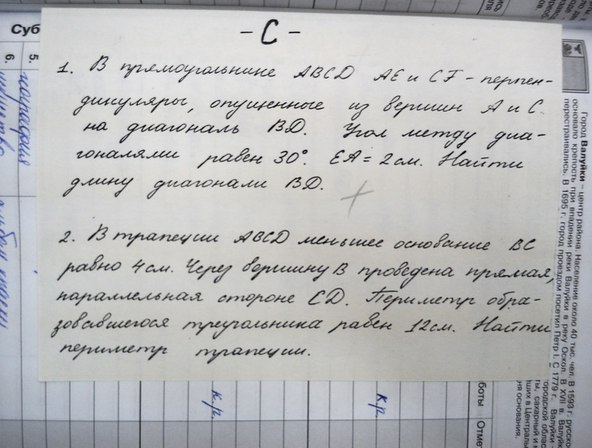 - С -
1. В прямоугольнике ABCD AE и CF - перпен-
дикуляры, опущенные из вершин A и C
на диагональ BD. Угол между диа-
гоналями равен 30°. EA = 2см. Найти
длину диагонали BD.
2. В трапеции ABCD меньшее основание BC
равно 4 см. Через вершину B проведена прямая,
параллельная стороне CD. Периметр обра-
зовавшегося треугольника равен 12см. Найти
периметр трапеции.
Суб
5.
6.
география
к.р.
к.р.
боты
Город Валуйки – центр района. Население около 40 тыс. чел. В 1593 г. русск
основало крепость при впадении реки Валуйки в реку Оскол. В XVII в.
перестраивались. В 1695 г. город проездом посетил Петр I. С 1779 г.